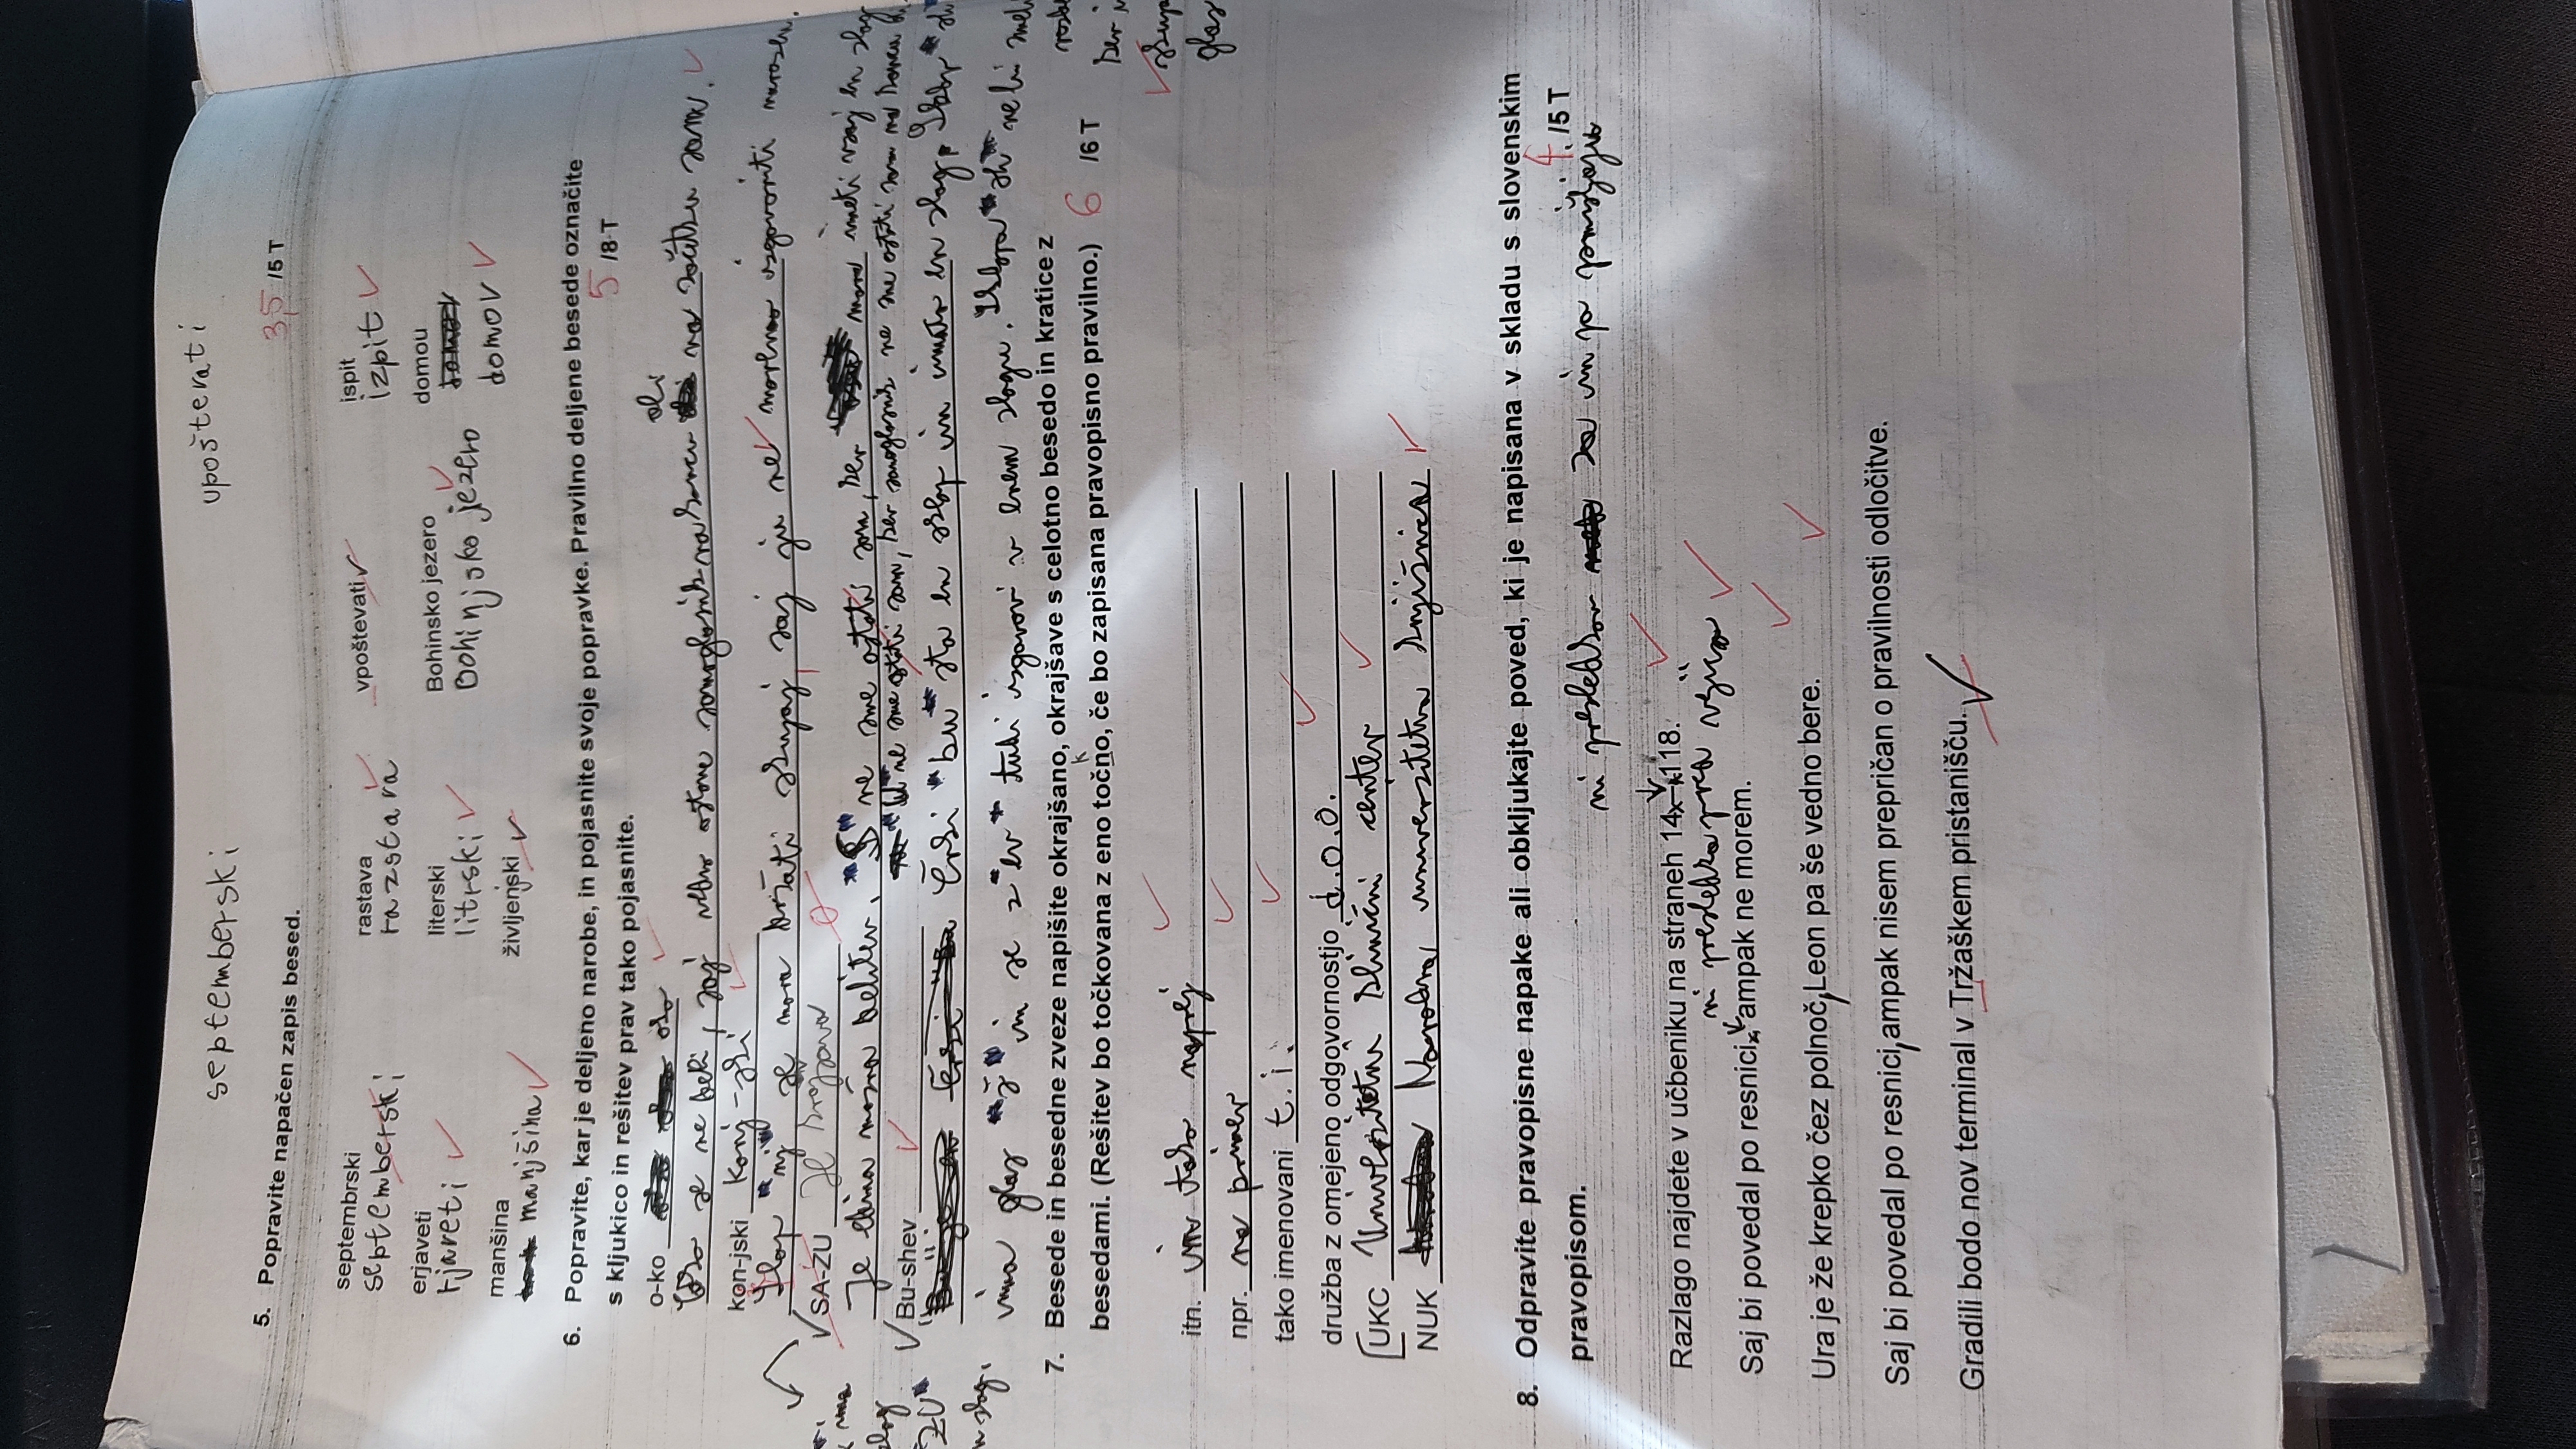 septemberski upoštevati
5. Popravite napačen zapis besed. 3,5 /5 T
septembrski rastava vpoštevati ispit
septemberski razstava izpit
erjaveti literski Bohinsko jezero domou
rjaveti litrski Bohinjsko jezero
domov
manšina življenski
manjšina j
6. Popravite, kar je deljeno narobe, in pojasnite svoje popravke. Pravilno deljene besede označite
s kljukico in rešitev prav tako pojasnite. 5 /8 T
o-ko oko
oli
se ne deli, saj vedno ostane samoglasnik na koncu na začetku sam.
kon-jski konj-ski
Sklop "nj" se mora držati skupaj, saj ju ne moremo izgovoriti narazen.
SA-ZU Je kratica
ima
Je edina možna delitev. "S" ne sme ostati sam, ker mora imeti vsaj en zlog
zlog
"U" ne sme ostati sam, ker samoglasnik ne sme ostati sam na koncu
Bu-shev
ZU"
Črki "bu" sta en sklop in imata en zlog. Sklop "sh"
zlog.
ima glas "š" in se z "ev" tudi izgovori v enem zlogu. Sklopa "sh" ne bi smeli
7. Besede in besedne zveze napišite okrajšano, okrajšave s celotno besedo in kratice z
k
besedami. (Rešitev bo točkovana z eno točno, če bo zapisana pravopisno pravilno.) 6 /6 T
ker
itn. in tako naprej
glas
npr. na primer
tako imenovani t. i.
družba z omejeno odgovornostjo d.o.o.
UKC Univerzitetni klinični center
NUK Narodna univerzitetna knjižnica
8. Odpravite pravopisne napake ali obkljukajte poved, ki je napisana v skladu s slovenskim
pravopisom. 4 /5 T
ni presledkov za in po pomišljaju
Razlago najdete v učbeniku na straneh 14 – 118.
ni presledka pred vejico
Saj bi povedal po resnici , ampak ne morem.
Ura je že krepko čez polnoč, Leon pa še vedno bere.
Saj bi povedal po resnici, ampak nisem prepričan o pravilnosti odločitve.
Gradili bodo nov terminal v Tržaškem pristanišču.